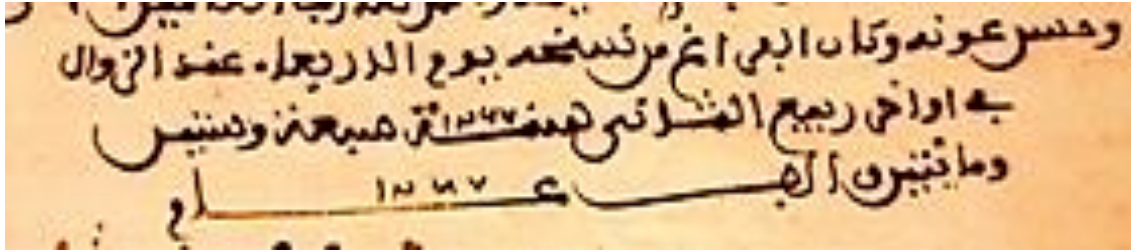 وحسن عونه وكان الفراغ من نسخه يوم الاربعاء عند الزوال
في اواخر ربيع الثاني سنة ١٢٦٧ سبعة وستين
ومائتين والف عام ١٢٦٧